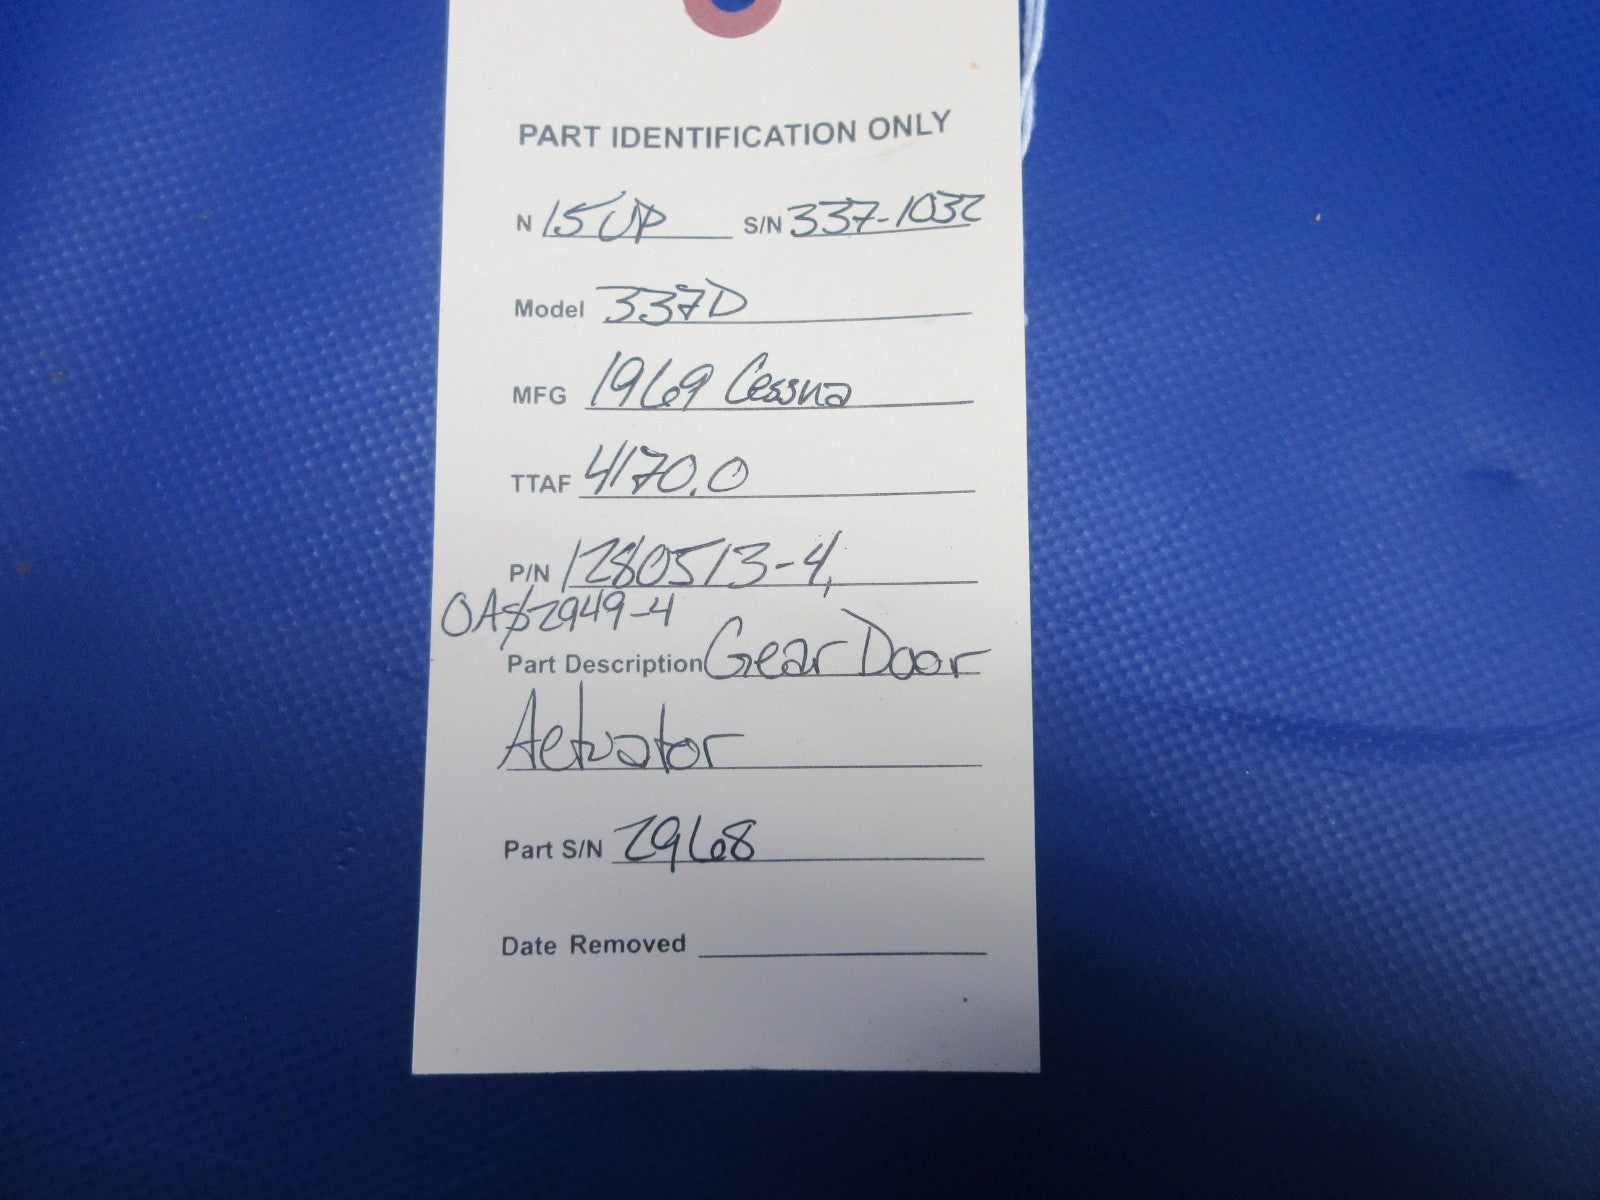 PART IDENTIFICATION ONLY
N 15UP S/N 337-1032
Model 337D
MFG 1969 Cessna
TTAF 4170.0
P/N 1280513-4,
Part Description Gear Door
Actuator
Part S/N 2968
Date Removed